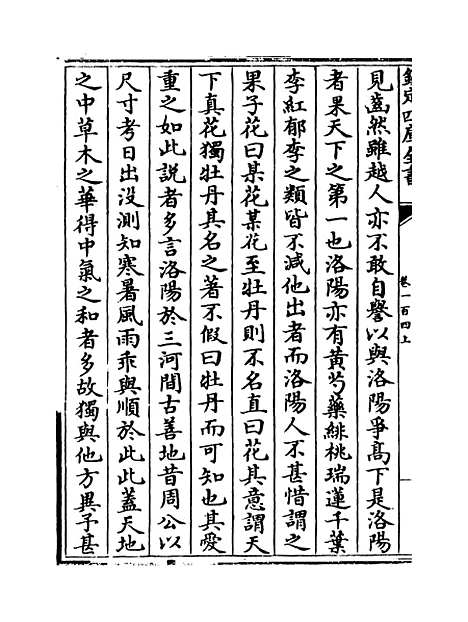 欽定四庫全書
卷一百四上
見齒然雖越人亦不敢自譽以與洛陽爭髙下是洛陽
者果天下之第一也洛陽亦有黄芍藥緋桃瑞蓮千葉
李紅郁李之類皆不減他出者而洛陽人不甚惜謂之
果子花曰某花某花至牡丹則不名直曰花其意謂天
下真花獨牡丹其名之著不假曰牡丹而可知也其愛
重之如此説者多言洛陽於三河間古善地昔周公以
尺寸考日出没測知寒暑風雨乖與順於此此蓋天地
之中草木之華得中氣之和者多故獨與他方異予甚